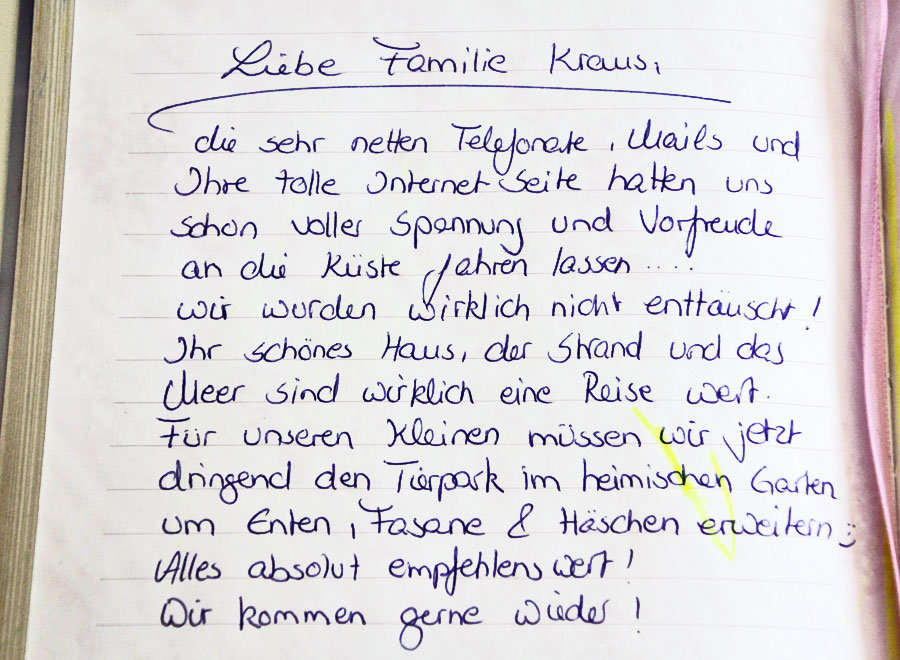 Liebe Familie Kraus,
die sehr netten Telefonate, Mails und
Ihre tolle Internet Seite hatten uns
schon voller Spannung und Vorfreude
an die Küste fahren lassen ....
wir wurden wirklich nicht enttäuscht!
Ihr schönes Haus, der Strand und das
Meer sind wirklich eine Reise wert.
Für unseren Kleinen müssen wir jetzt
dringend den Tierpark im heimischen Garten
um Enten, Fasane & Häschen erweitern ;)
Alles absolut empfehlenswert!
Wir kommen gerne wieder!